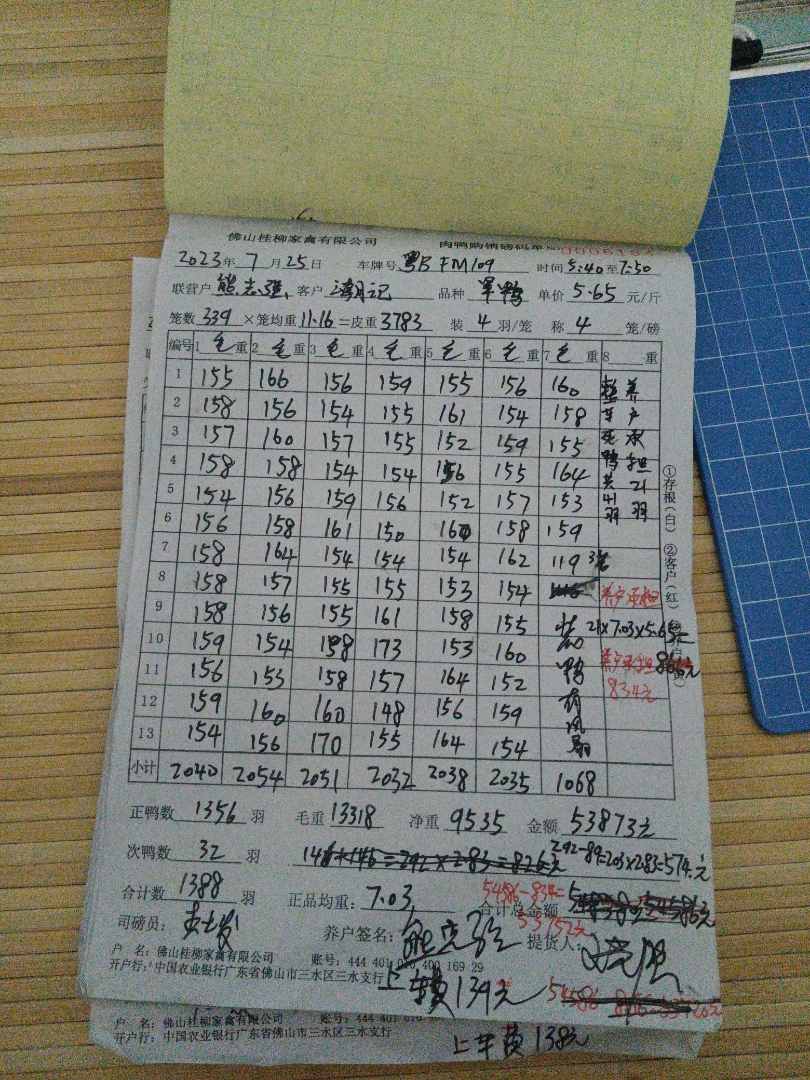 佛山桂柳家禽有限公司 肉鸭购销磅码单
2023年 7月25日 车牌号 粤B FM109 时间 5:40至7:50
联营户 熊志强 客户 潮记 品种 单价 5.65 元/斤
笼数 339 ×笼均重 11.16 =皮重 3783 装 4 羽/笼 称 4 笼/磅
编号 1 毛重 2 毛重 3 毛重 4 毛重 5 毛重 6 毛重 7 毛重 8 重
1 155 166 156 159 155 156 160
2 158 156 154 155 161 154 158
3 157 160 157 155 152 159 155
4 158 158 154 154 156 155 164
5 154 156 159 156 152 157 153
6 156 158 161 150 160 158 159
7 158 164 154 154 154 162 119 3笼
8 158 157 155 155 153 154
9 158 156 155 161 158 155
10 159 154 158 173 153 160
11 156 153 158 157 164 152
12 159 160 160 148 156 159
13 154 156 170 155 164 154
小计 2040 2054 2051 2032 2038 2035 1068
整车死鸭共41羽
养户承担21羽
养户承担
21×7.03×5.65=
养户承担
834元
装鸭有风扇
①存根(白) ②客户(红)
正鸭数 1356 羽 毛重 13318 净重 9535 金额 53873元
次鸭数 32 羽 146+146=292×2.83=826元 292-89=203×2.83=574元
合计数 1388 羽 正品均重: 7.03 合计总金额 54586元
54586-834=
53752元
司磅员: 养户签名: 提货人:
户 名: 佛山桂柳家禽有限公司 账号: 444 401 010 400 169 29
开户行: 中国农业银行广东省佛山市三水区三水支行
上车费139元
54586
户 名: 佛山桂柳家禽有限公司 账号: 444 401 010
开户行: 中国农业银行广东省佛山市三水区三水支行
上车费138元